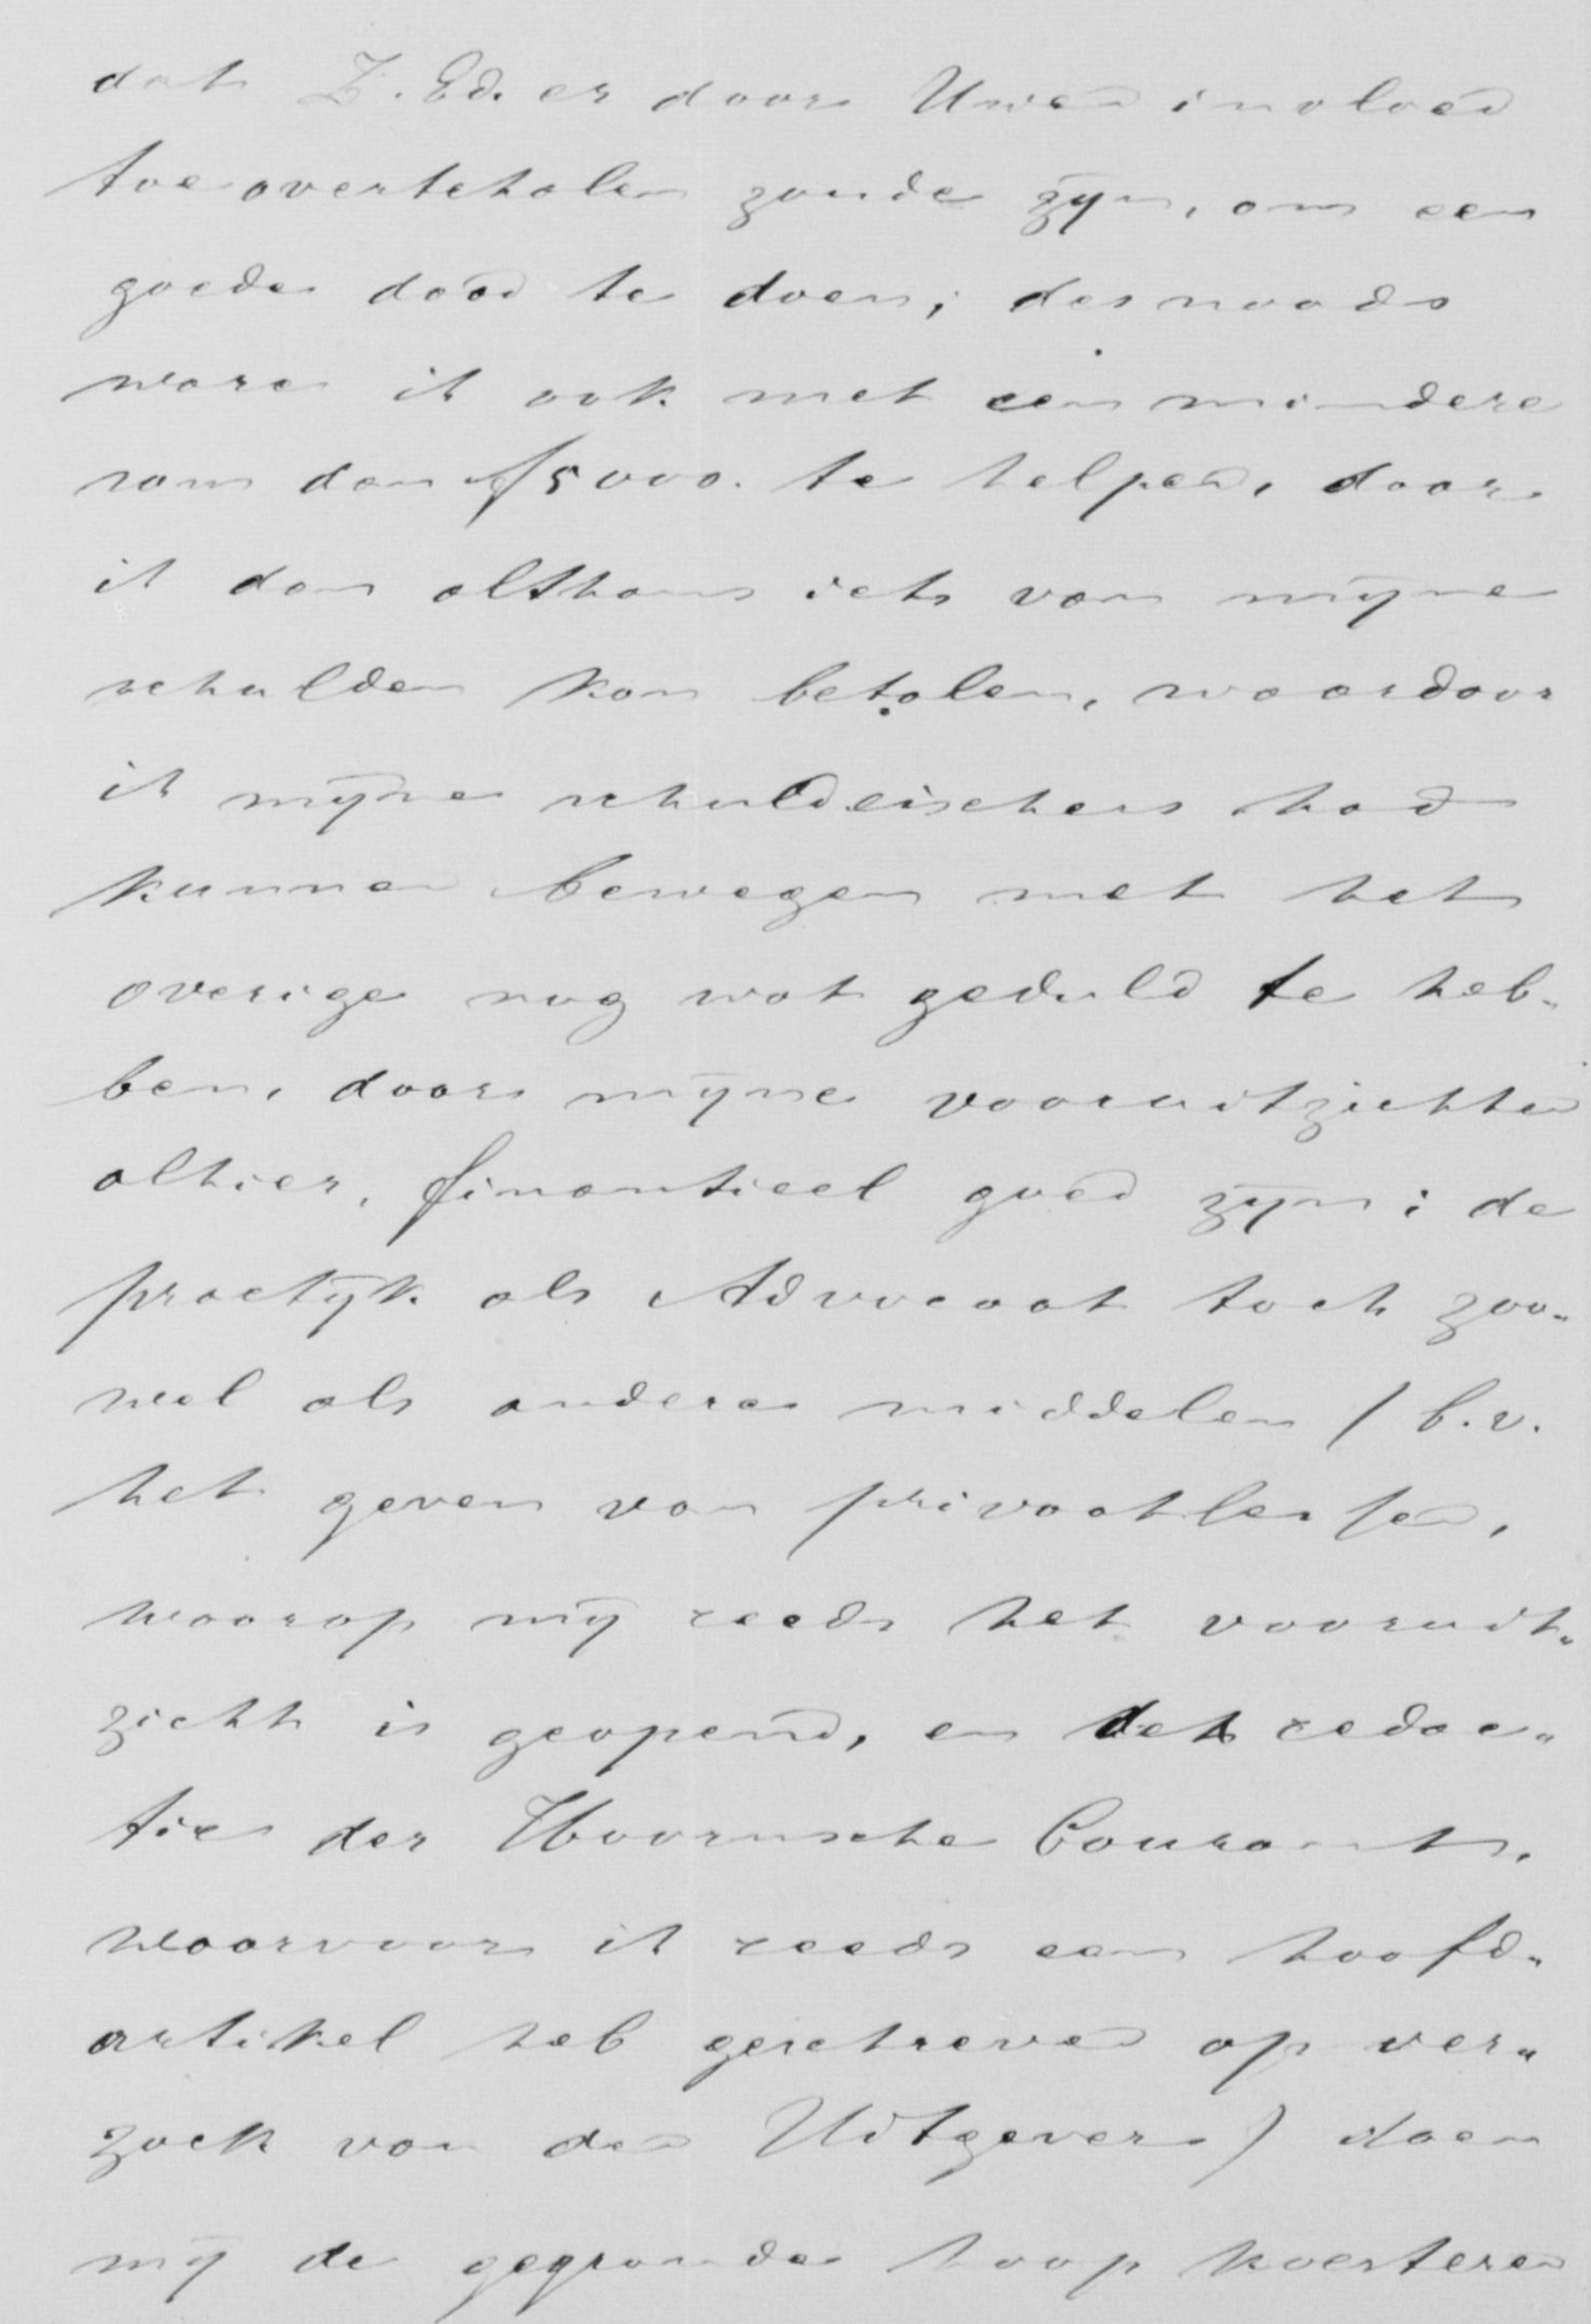 dat Z. Ed. er door Uwen invloed
toe overtehalen zoude zijn, om een
goede daad te doen; desnoods
ware ik ook met een mindere
som dan ƒ5000. te helpen, daar
ik dan althans iets van mijne
schulden kon betalen, waardoor
ik mijne schuldeischers had
kunnen bewegen met het
overige nog wat geduld te heb-
ben, daar mijne vooruitzichten
alhier, finantieel goed zijn: de
practijk als Advocaat toch zoo-
wel als andere middelen (b.v.
het geven van privaatlessen,
waarop mij reeds het vooruit-
zicht is geopend, en de redac-
tie der Hoornsche Courant,
waarvoor ik reeds een hoofd-
artikel heb geschreven op ver-
zoek van den Uitgever) doen
mij de gegronde hoop koesteren